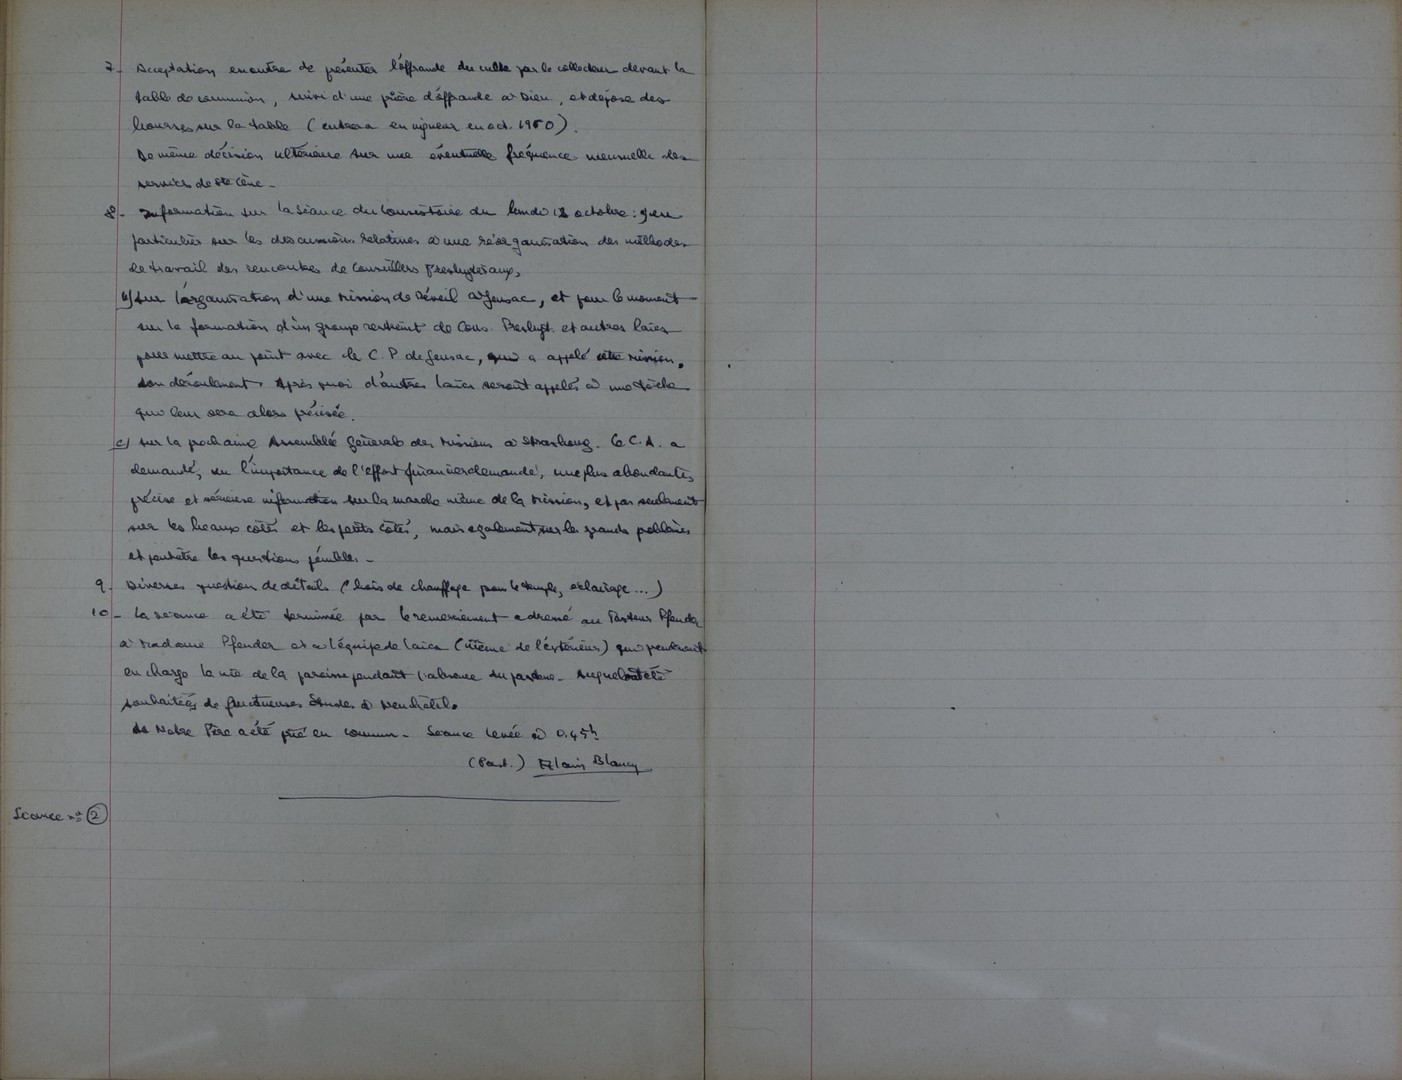 7 - Acceptation en outre de présenter l'offrande du culte par le collecteur devant la
table de communion, suivi d'une prière d'offrande à Dieu, et dépose des
bourses sur la table (entrera en vigueur en oct. 1950).
De même décision ultérieure sur une éventuelle fréquence mensuelle des
services de Ste Cène -
8 - Information sur la séance du Consistoire du lundi octobre : en
particulier sur les discussions relatives à une réorganisation des méthodes
de travail des rencontres de Conseillers Presbytéraux,
b) sur l'organisation d'une Mission de Réveil à Gensac, et pour le moment
sur la formation d'un groupe restreint de Cons. Presbyt. et autres laïcs
pour mettre au point avec le C.P. de Gensac, qui a appelé cette mission,
son déroulement. Après quoi d'autres laïcs seront appelés à une tâche
qui leur sera alors précisée.
c) sur la prochaine Assemblée générale des Missions à Strasbourg. Le C.A. a
demandé, vu l'importance de l'effort financier demandé, une plus abondante,
précise et sérieuse information sur la marche même de la Mission, et pas seulement
sur les beaux côtés et les petits côtés, mais également sur les grands problèmes
et peut être les questions pénibles -
9 - Diverses question de détails (bois de chauffage pour le temple, éclairage ...)
10 - La séance a été terminée par le remerciement adressé au Pasteur Pfender
à Madame Pfender et à l'équipe de laïcs (même de l'extérieur) qui prendront
en charge la vie de la paroisse pendant l'absence du pasteur - auquel ont été
souhaitées de fructueuses études à Neuchâtel.
Le Notre Père a été prié en commun - Séance levée à 0.45h
(Past.) Alain Blancy
Séance n° 2